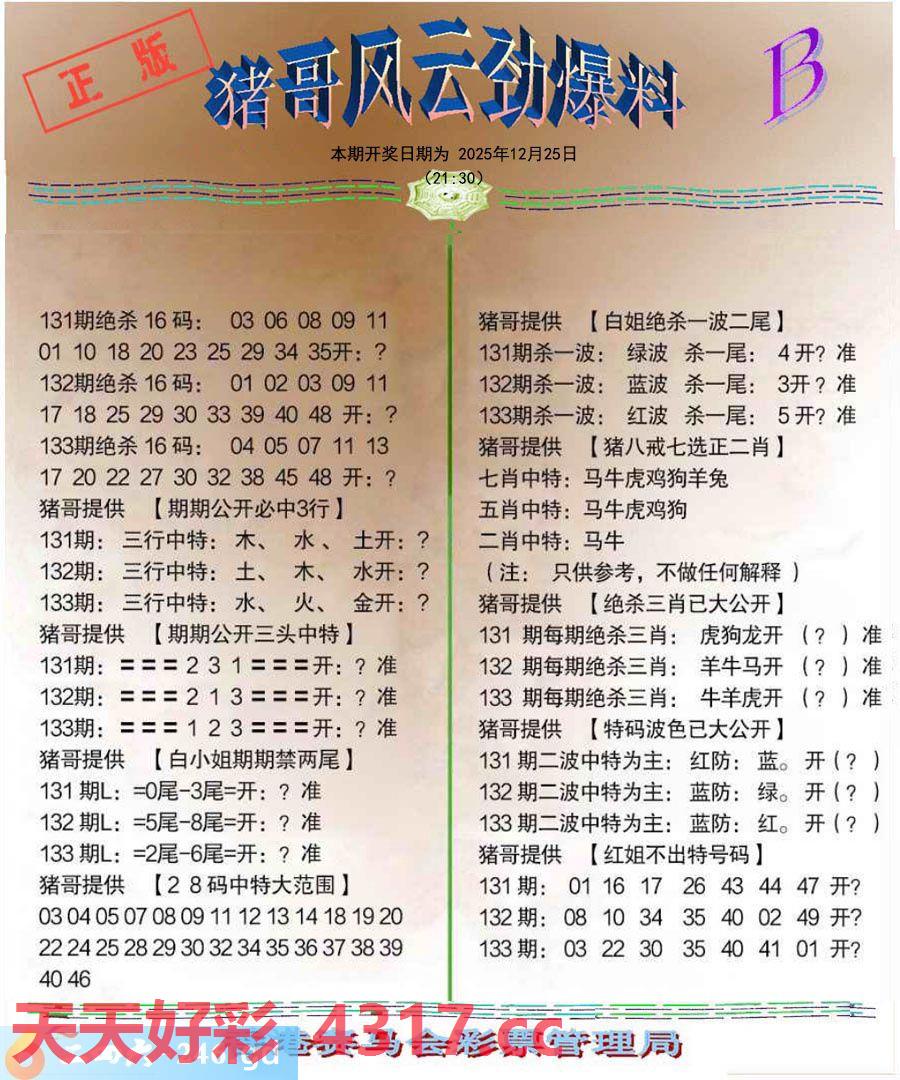 正版
猪哥风云劲爆料
B
本期开奖日期为 2025年12月25日
(21:30)
131期绝杀 16 码： 03 06 08 09 11
01 10 18 20 23 25 29 34 35开：?
132期绝杀 16 码： 01 02 03 09 11
17 18 25 29 30 33 39 40 48 开：?
133期绝杀 16 码： 04 05 07 11 13
17 20 22 27 30 32 38 45 48 开：?
猪哥提供 【期期公开必中3行】
131期： 三行中特： 木、 水、 土开：?
132期： 三行中特： 土、 木、 水开：?
133期： 三行中特： 水、 火、 金开：?
猪哥提供 【期期公开三头中特】
131期：〓〓〓2 3 1〓〓〓开：? 准
132期：〓〓〓2 1 3〓〓〓开：? 准
133期：〓〓〓1 2 3〓〓〓开：? 准
猪哥提供 【白小姐期期禁两尾】
131 期L：=0尾-3尾=开：? 准
132 期L：=5尾-8尾=开：? 准
133 期L：=2尾-6尾=开：? 准
猪哥提供 【2 8 码中特大范围】
03 04 05 07 08 09 11 12 13 14 18 19 20
22 24 25 28 29 30 32 34 35 36 37 38 39
40 46
猪哥提供 【白姐绝杀一波二尾】
131期杀一波： 绿波 杀一尾： 4 开? 准
132期杀一波： 蓝波 杀一尾： 3开 ? 准
133期杀一波： 红波 杀一尾： 5 开? 准
猪哥提供 【猪八戒七选正二肖】
七肖中特：马牛虎鸡狗羊兔
五肖中特：马牛虎鸡狗
二肖中特：马牛
（注： 只供参考，不做任何解释 ）
猪哥提供 【绝杀三肖已大公开】
131 期每期绝杀三肖： 虎狗龙开 （? ）准
132 期每期绝杀三肖： 羊牛马开 （? ）准
133 期每期绝杀三肖： 牛羊虎开 （? ）准
猪哥提供 【特码波色已大公开】
131 期二波中特为主： 红防： 蓝。 开（? ）
132 期二波中特为主： 蓝防： 绿。 开（? ）
133 期二波中特为主： 蓝防： 红。 开（? ）
猪哥提供 【红姐不出特号码】
131 期： 01 16 17 26 43 44 47 开?
132 期： 08 10 34 35 40 02 49 开?
133 期： 03 22 30 35 40 41 01 开?
天天好彩 4317.cc
港赛马会彩票管理局